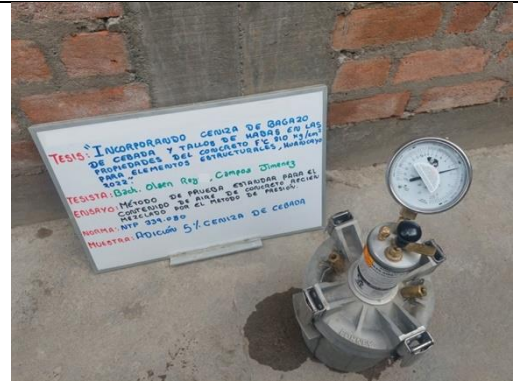 TESIS: "INCORPORANDO CENIZA DE BAGAZO
DE CEBADA Y TALLOS DE HABAS EN LAS
PROPIEDADES DEL CONCRETO F'C 210 Kg/cm²
PARA ELEMENTOS ESTRUCTURALES, HUANCAYO
2022"
TESISTA: Bach. Olsen Roy, Campos Jimenez
ENSAYO: MÉTODO DE PRUEBA ESTANDAR PARA EL
CONTENIDO DE AIRE DE CONCRETO RECIEN
MEZCLADO POR EL METODO DE PRESIÓN.
NORMA: NTP 339.080
MUESTRA: ADICIÓN 5% CENIZA DE CEBADA